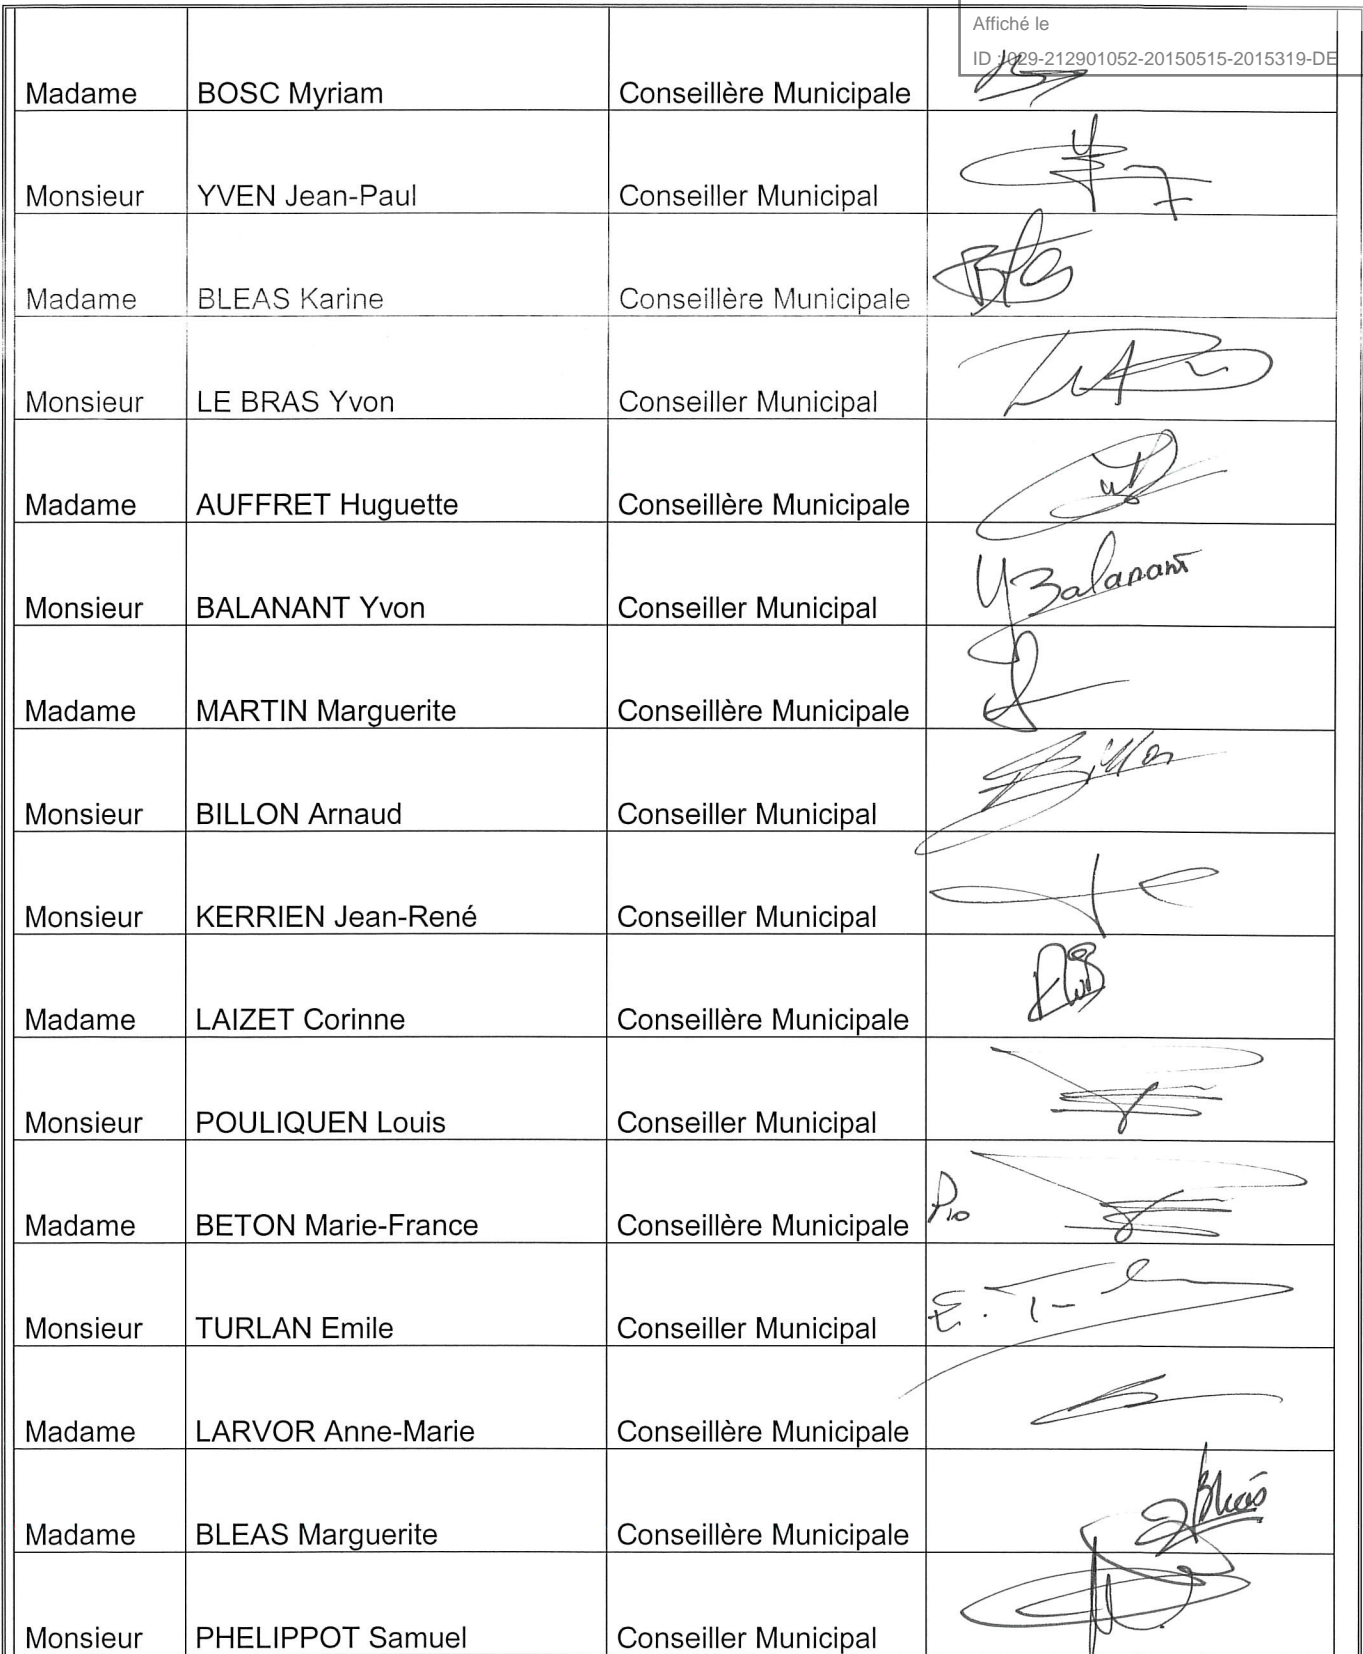 Affiché le
ID : 029-212901052-20150515-2015319-DE
Madame BOSC Myriam Conseillère Municipale
Monsieur YVEN Jean-Paul Conseiller Municipal
Madame BLEAS Karine Conseillère Municipale
Monsieur LE BRAS Yvon Conseiller Municipal
Madame AUFFRET Huguette Conseillère Municipale
Monsieur BALANANT Yvon Conseiller Municipal Y Balanant
Madame MARTIN Marguerite Conseillère Municipale
Monsieur BILLON Arnaud Conseiller Municipal Billon
Monsieur KERRIEN Jean-René Conseiller Municipal
Madame LAIZET Corinne Conseillère Municipale
Monsieur POULIQUEN Louis Conseiller Municipal
Madame BETON Marie-France Conseillère Municipale
Monsieur TURLAN Emile Conseiller Municipal
Madame LARVOR Anne-Marie Conseillère Municipale
Madame BLEAS Marguerite Conseillère Municipale Bleas
Monsieur PHELIPPOT Samuel Conseiller Municipal